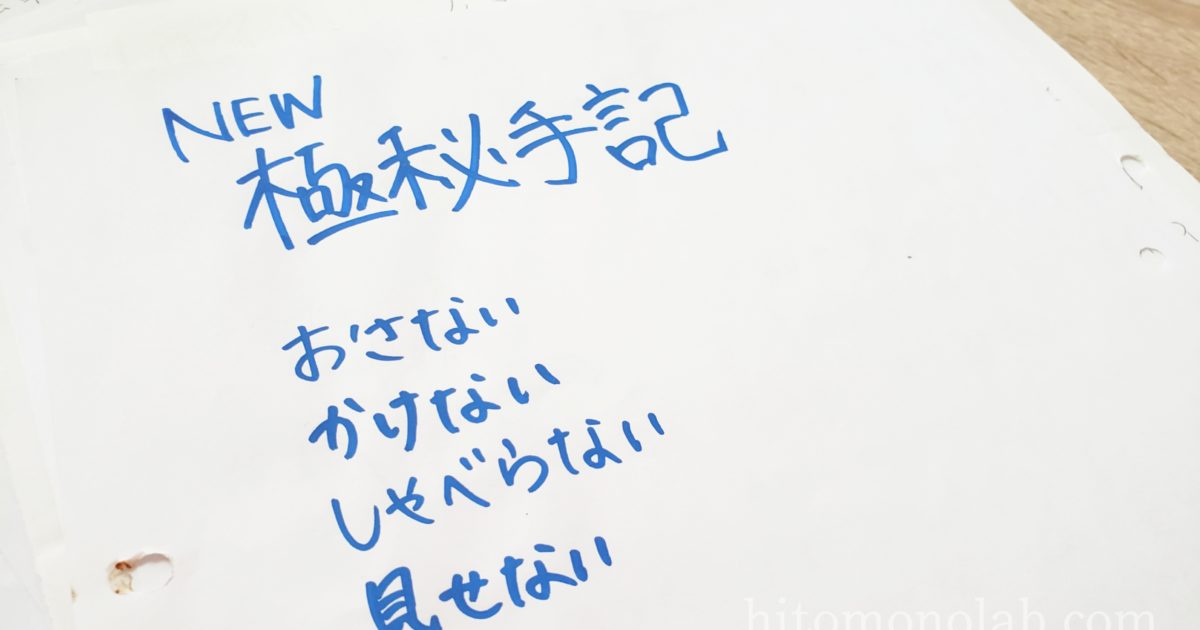 NEW
極秘手記
おさない
かけない
しゃべらない
見せない
hitomonolab.com